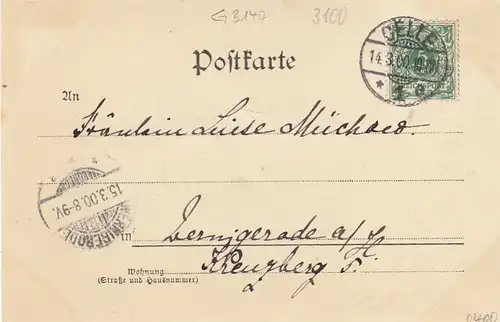 G 3147 3100
CELLE
14.3.00
1 a
Postkarte
An
Fräulein Luise
15.3.00.8-9V.
WERNIGERODE
in Wernigerode a/H
Kreuzberg
Wohnung
(Straße und Hausnummer)
0400